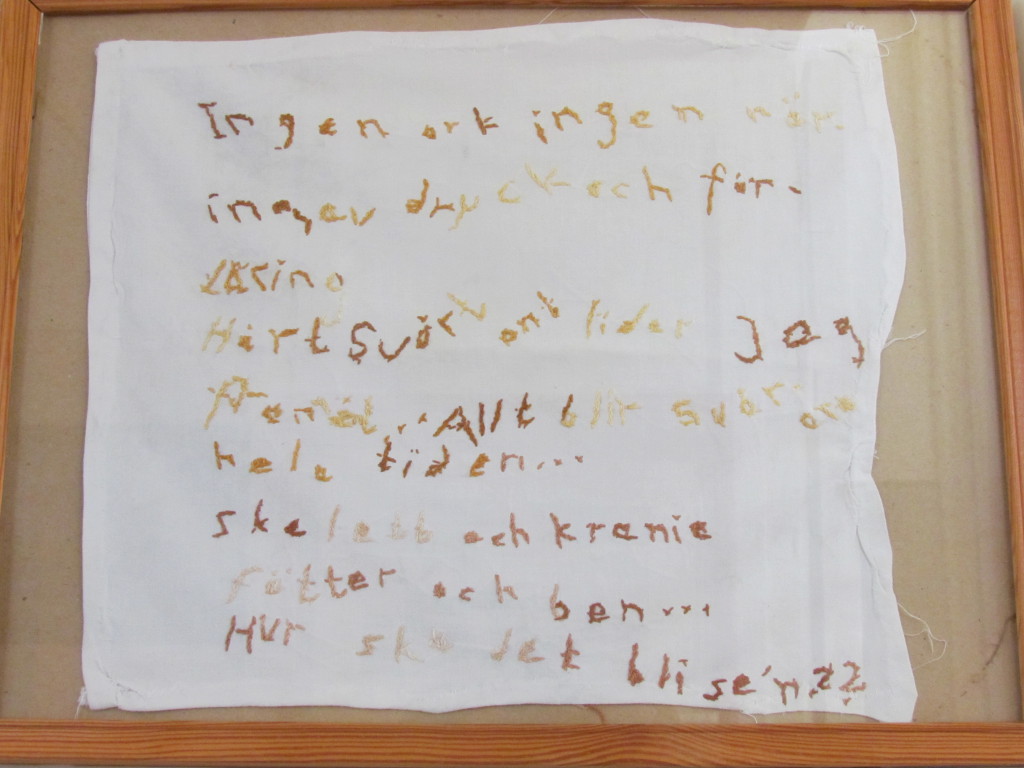 Ingen ork ingen när.
ingav dryck och för.
täring
Hårt Svårt ont lider Jag
Allt blir svår are
hela tiden...
skelett och kranie
fötter och ben...
Hur ska det bli se'n??